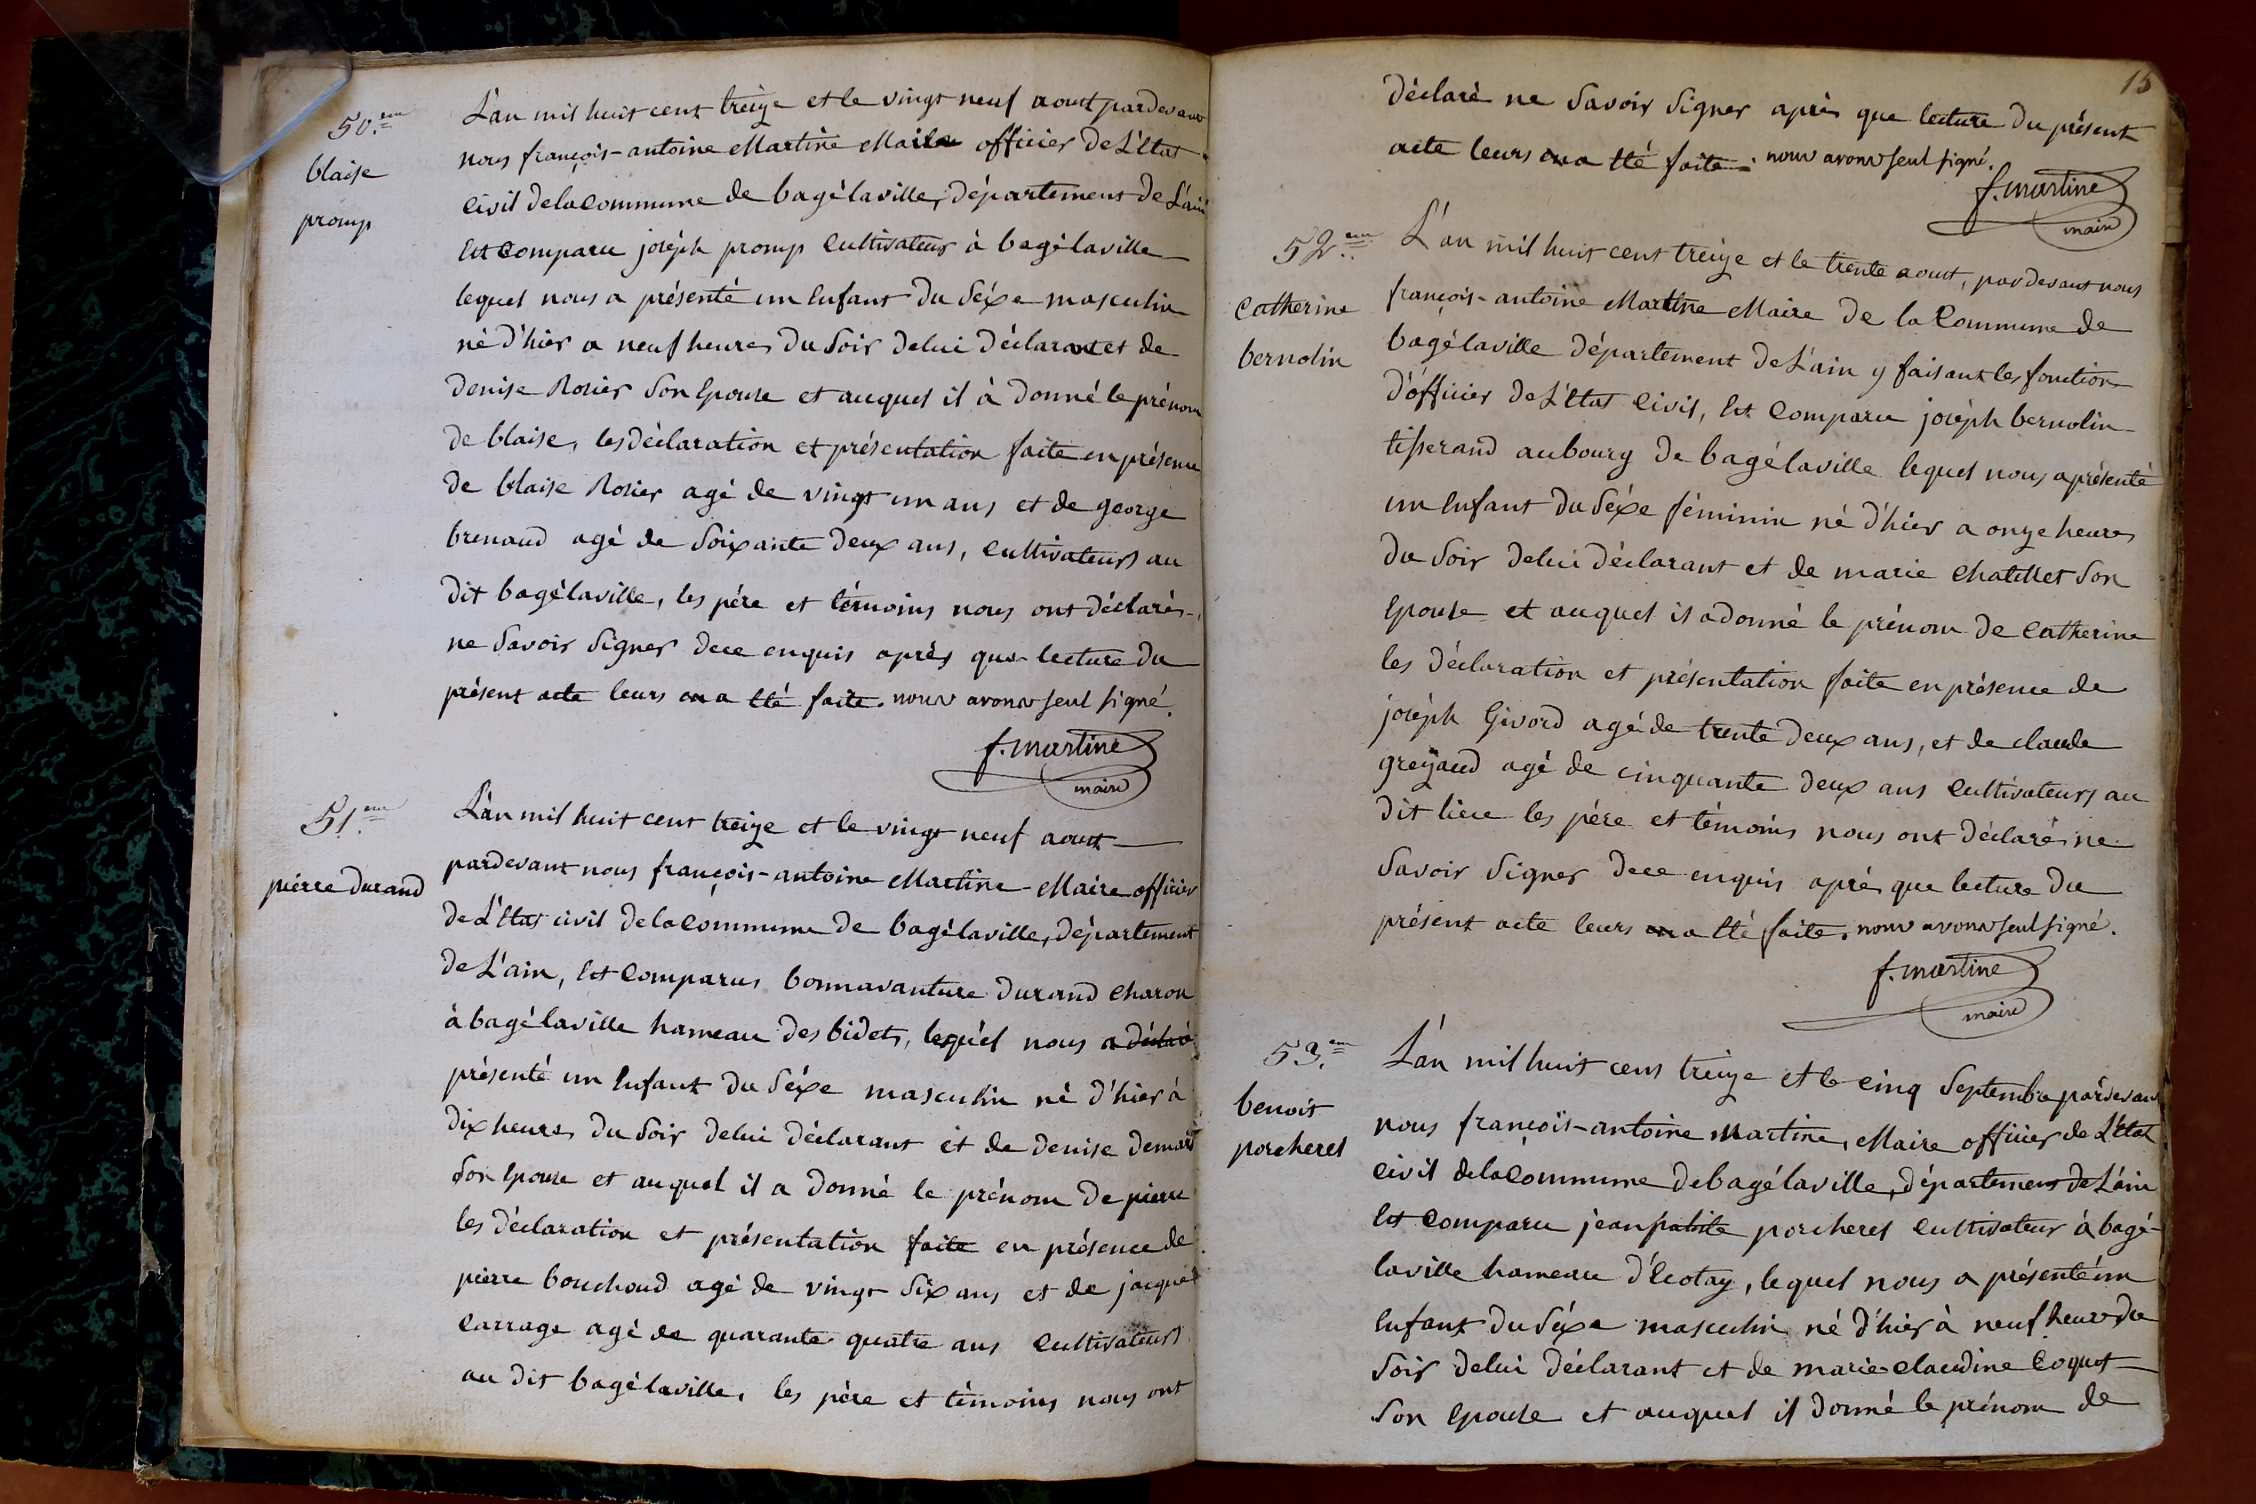 50.em
blaise
promp
L'an mil huit cent treize et le vingt neuf aout pardevant
nous françois-antoine Martine Maire officier de L'Etat
Civil de la Commune de bagélaville, département de L'ain
Est Comparu joséph promp Cultivateur à bagélaville
lequel nous a présenté un Enfant du Séxe masculin
né d'hier a neuf heures du Soir de lui déclarant et de
denise Rosier Son Epouse et auquel il à donné le prénom
de blaise, les déclaration et présentation faite en présence
de blaise Rosier agé de vingt un ans et de george
brenaud agé de Soixante deux ans, Cultivateurs au
dit bagélaville, les pére et témoins nous ont déclarés
ne Savoir Signer de ce enquis après que lecture du
présent acte leurs en a Eté faite. nous avons seul signé.
f. martine
maire
51.em
pierre durand
L'an mil huit cent treize et le vingt neuf aout
pardevant nous françois-antoine Martine Maire officier
de L'Etat civil de la Commune de bagélaville, département
de L'ain, Est Comparus bonnavanture durand Charon
à bagélaville hameau des bidets, lequél nous a déclaré
présenté un Enfant du Séxe masculin né d'hier à
dix heures du Soir de lui déclarant et de denise
Son Epouse et auquel il a donné le prénom de pierre
les déclaration et présentation faite en présence de
pierre bouchoud agé de vingt Six ans et de jacques
Carrage agé de quarante quatre ans Cultivateurs
au dit bagélaville, les père et témoins nous ont
15
déclaré ne Savoir Signer après que lecture du présent
acte leurs en a Eté faite. nous avons seul signé.
f. martine
maire
52.em
Catherine
bernolin
L'an mil huit cent treize et le trente aout, pardevant nous
françois-antoine Martine Maire de la Commune de
bagélaville département de L'ain y faisant les fonction
d'officier de L'Etat Civil, Est Comparu joséph bernolin
tisserand au bourg de bagélaville lequel nous a présenté
un Enfant du Séxe féminin né d'hier a onze heures
du Soir de lui déclarant et de marie Chatillet Son
Epouse et auquel il a donné le prénom de Catherine
les déclaration et présentation faite en présence de
joséph Givord agé de trente deux ans, et de claude
grezaud agé de cinquante deux ans Cultivateurs au
dit lieu les pére et témoins nous ont déclarés ne
Savoir Signer de ce enquis aprés que lecture du
présent acte leurs en a Eté faite. nous avons seul signé.
f. martine
maire
53.em
benoit
porcheret
L'an mil huit cent treize et le cinq Septembre pardevant
nous françois-antoine Martine, Maire officier de L'état
civil de la Commune de bagélaville, département de L'ain
Est Comparu jean porcheret Cultivateur à bagé-
laville hameau d'Ecotay, lequel nous a présenté un
Enfant du Séxe masculin né d'hier à neuf heures du
Soir de lui déclarant et de marie claudine Coquet
Son Epouse et auquel il donné le prénom de